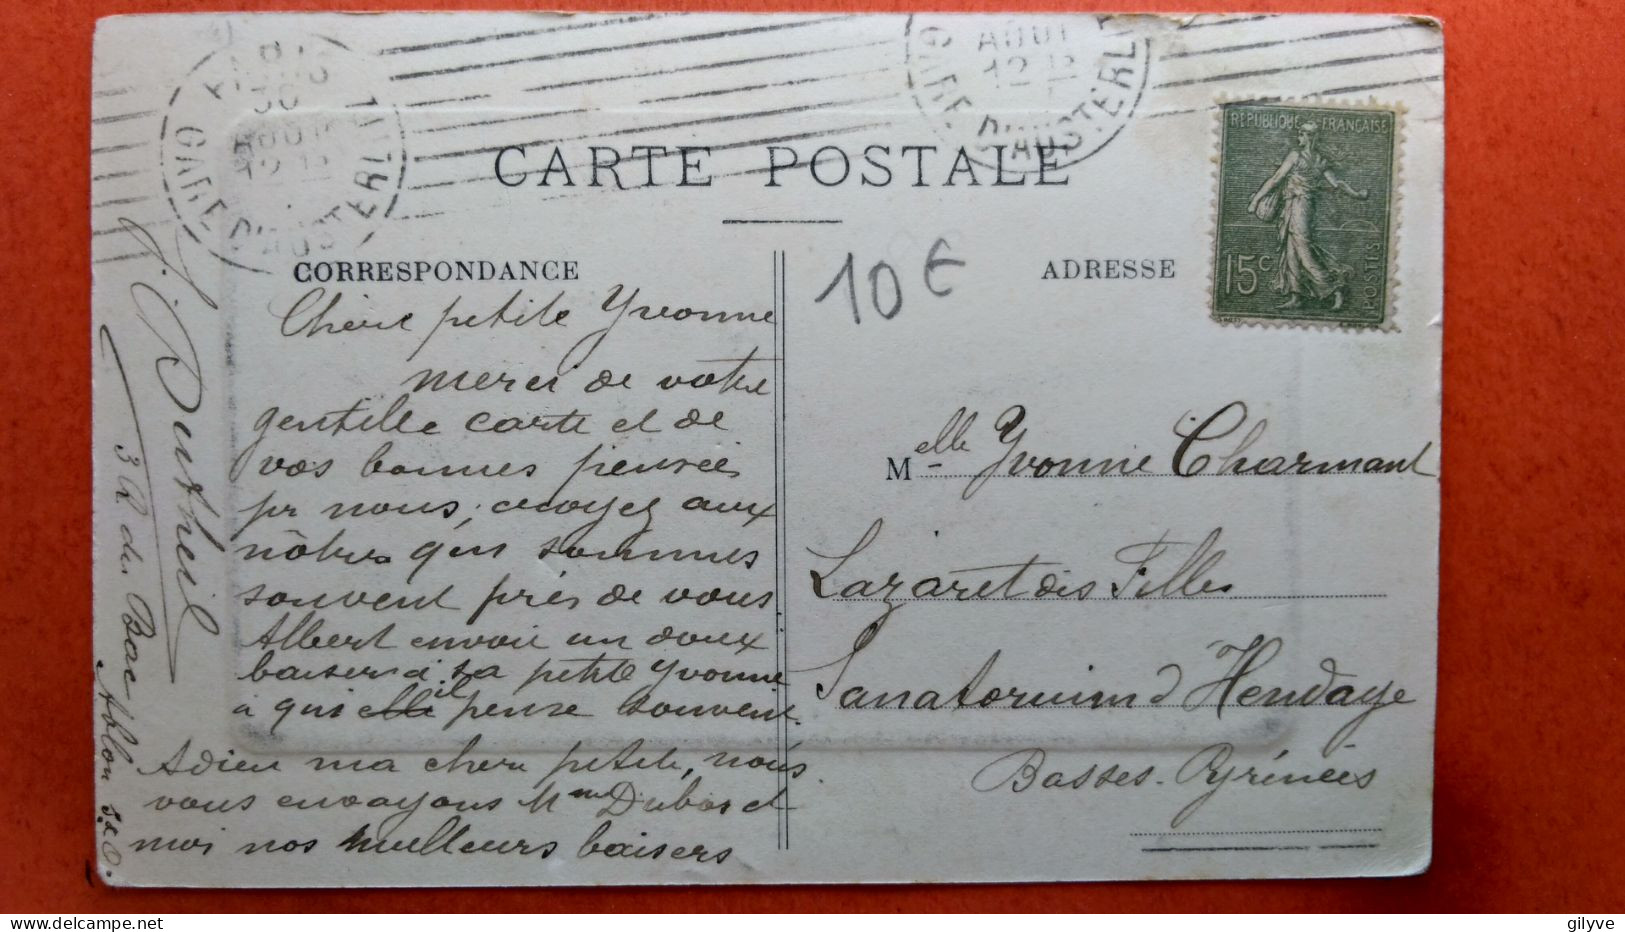 PARIS
30
AOUT
12
GARE D'AUSTERLITZ
AOUT
12
GARE D'AUSTERLITZ
REPUBLIQUE FRANÇAISE
15c
POSTES
CARTE POSTALE
CORRESPONDANCE
ADRESSE
10 €
Chère petite Yvonne
Merci de votre
gentille carte et de
vos bonnes pensées
pr nous, croyez aux
nôtres qui sommes
souvent près de vous
Albert envoie un doux
baiser à sa petite Yvonne
à qui elle il pense souvent.
Adieu ma chère petite, nous
vous envoyons Mme Dubos et
moi nos meilleurs baisers
Dutheil
3 R du Bac
Ablon S.&O.
Melle Yvonne Charmant
Lazaret des Filles
Sanatorium d'Hendaye
Basses-Pyrénées
gilyve